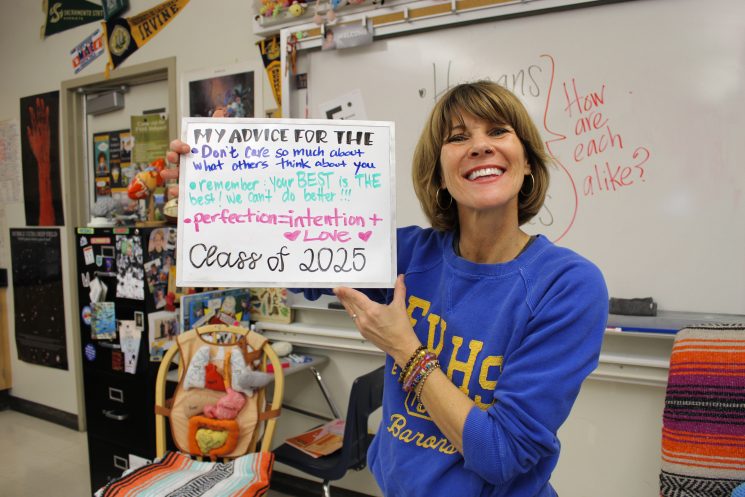 SACRAMENTO STATE
IRVINE
MY ADVICE FOR THE
• Don't care so much about
what others think about you
• remember: your BEST is THE
best! we can't do better!!!
• perfection = intention +
LOVE
Class of 2025
Humans
How
are
each
alike?
FVHS
Barons